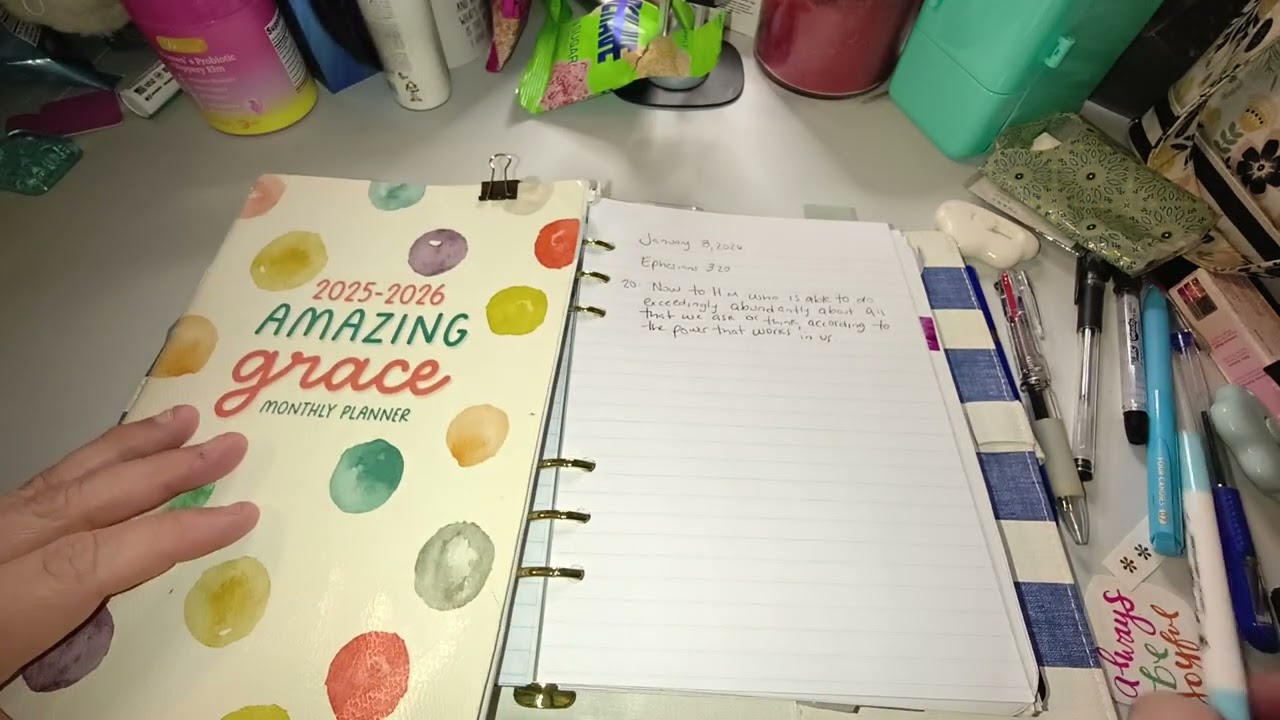 's Probiotic
pery Elm
SUGAR
2025-2026
AMAZING
grace
MONTHLY PLANNER
January 8, 2026
Ephesians 3:20
20. Now to Him who is able to do
exceedingly abundantly about all
that we ask or think, according to
the power that works in us
always
be
joyful